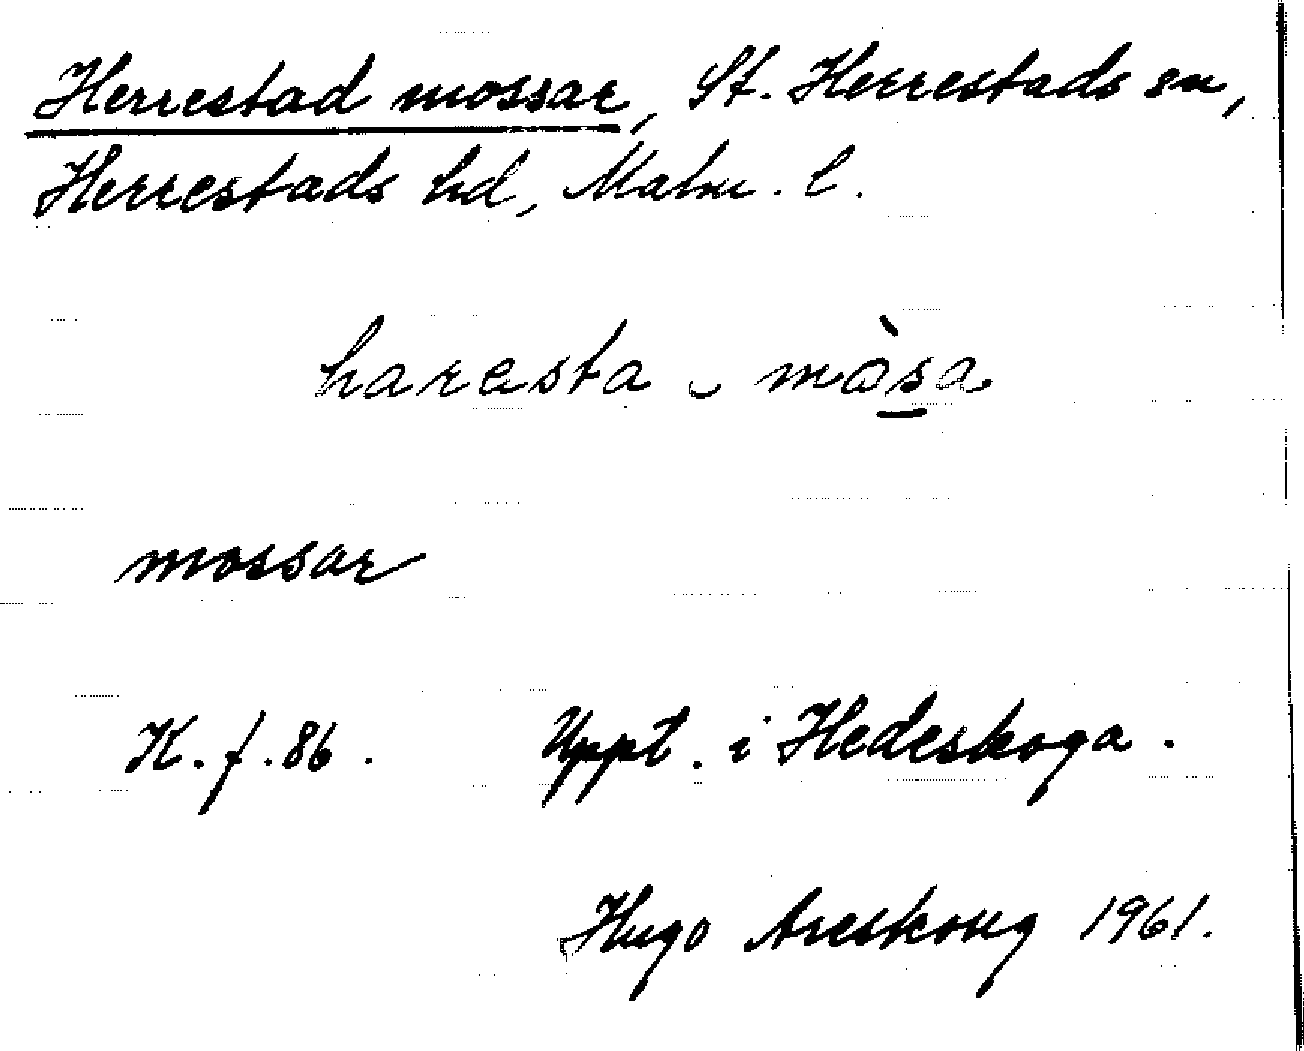 Herrestad mossar, St. Herrestads sn,
Herrestads hd, Malm. l.
harესta ᴗ mòsa
mossar
K. f. 86. Uppt. i Hedeskoga.
Hugo Areskoug 1961.